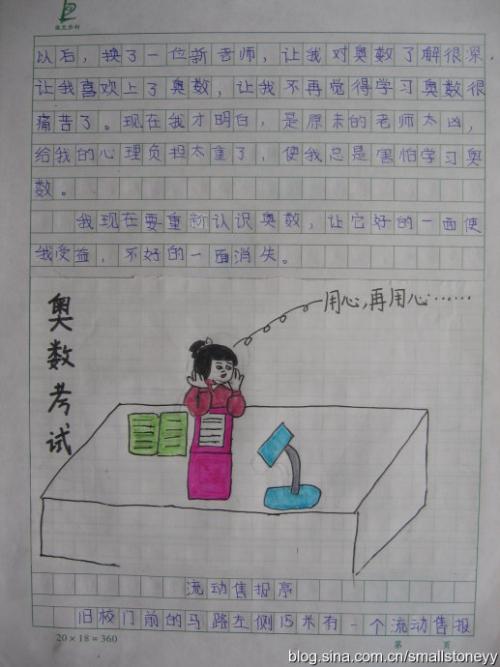 以后，换了一位新老师，让我对奥数了解很深
让我喜欢上了奥数，让我不再觉得学习奥数很
痛苦了。现在我才明白，是原来的老师太凶，
给我的心理负担太重了，使我总是害怕学习奥
数。
我现在要重新认识奥数，让它好的一面使
我受益，不好的一面消失。
奥数考试
用心，再用心……
流动售报亭
旧校门前的马路左侧15米有一个流动售报
20×18=360
第 页
blog.sina.com.cn/smallstoneyy